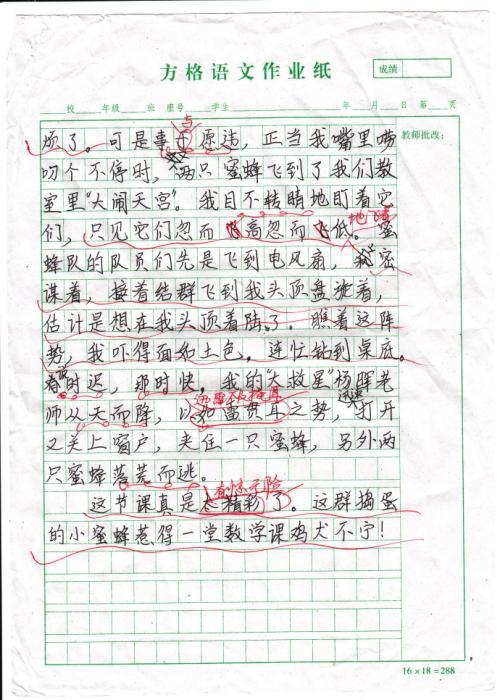 方格语文作业纸
成绩
校 年级 班 座号 学生 年 月 日 第 页
教师批改：
与
烦了。可是事于愿违，正当我嘴里唠
叨个不停时，两只蜜蜂飞到了我们教
室里“大闹天宫”。我目不转睛地盯着它
们，只见它们忽而飞高忽而飞低。蜜
蜂队的队员们先是飞到电风扇，密
谋着，接着结群飞到我头顶盘旋着，
估计是想在我头顶着陆了。瞧着这阵
势，我吓得面如土色，连忙钻到桌底。
说时迟，那时快，我的“大救星”杨晖老
师从天而降，以如雷贯耳之势，迅速打开
又关上窗户，夹住一只蜜蜂，另外两
只蜜蜂落荒而逃。
有惊无险
这节课真是太精彩了。这群捣蛋
的小蜜蜂惹得一堂数学课鸡犬不宁！
16×18=288